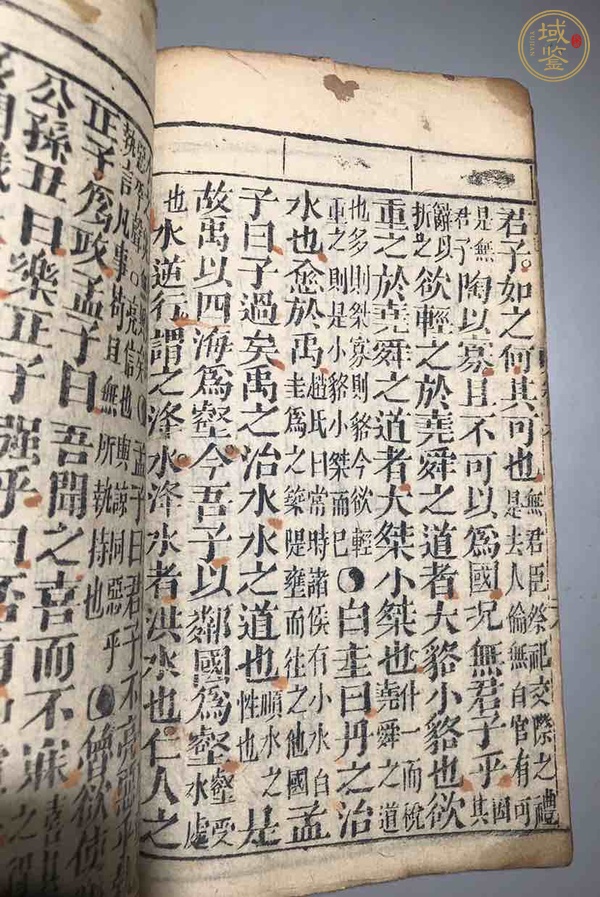 君子。如之何其可也無君臣祭祀交際之禮是去人倫無百官有可
是無君子陶以寡且不可以爲國况無君子乎因其
辭以折之欲輕之於堯舜之道者大貉小貉也欲
重之於堯舜之道者大桀小桀也什一而稅堯舜之道
也多則桀寡則貉今欲輕重之則是小貉小桀而已白圭曰丹之治
水也愈於禹趙氏曰當時諸侯有小水白圭爲之築隄壅而注之他國孟
子曰子過矣禹之治水水之道也順水之性也是
故禹以四海爲壑。今吾子以鄰國爲壑壑受水處
也水逆行。謂之洚水。洚水者洪水也仁人之
孟子曰君子不亮惡乎執
亮信也與諒同惡乎執言凡事苟且無所執持也魯欲使
正子爲政孟子曰吾聞之喜而不寐喜其
公孫丑曰樂正子强乎曰否有
域鉴
YUJIAN